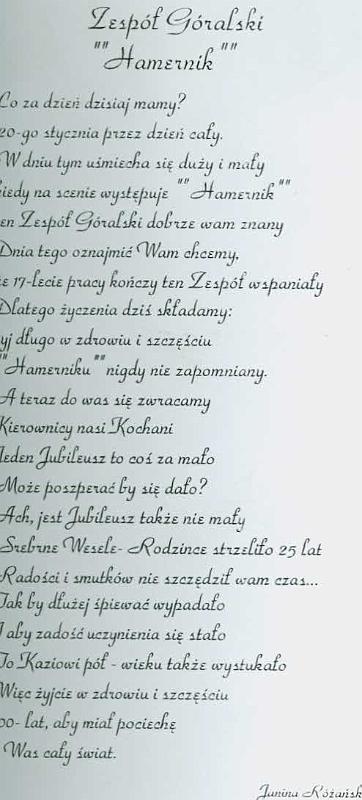 Zespół Góralski
""Hamernik""
Co za dzień dzisiaj mamy?
20-go stycznia przez dzień cały.
W dniu tym uśmiecha się duży i mały
iedy na scenie występuje ""Hamernik""
en Zespół Góralski dobrze wam znany
Dnia tego oznajmić Wam chcemy,
że 17-lecie pracy kończy ten Zespół wspaniały
Dlatego życzenia dziś składamy:
yj długo w zdrowiu i szczęściu
""Hamerniku"" nigdy nie zapomniany.
A teraz do was się zwracamy
Kierownicy nasi Kochani
Jeden Jubileusz to coś za mało
Może poszperać by się dało?
Ach, jest Jubileusz także nie mały
Srebrne Wesele- Rodzince strzeliło 25 lat
Radości i smutków nie szczędził wam czas...
Tak by dłużej śpiewać wypadało
I aby zadość uczynienia się stało
To Kaziowi pół - wieku także wystukało
Więc żyjcie w zdrowiu i szczęściu
00- lat, aby miał pociechę
Was cały świat.
Janina Różańsk